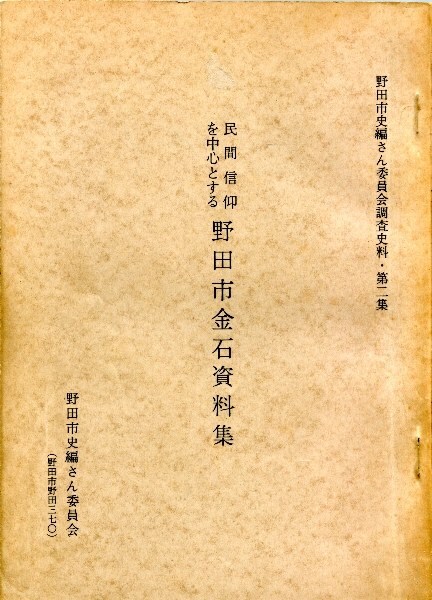 野田市史編さん委員会調査史料・第二集
民間信仰
を中心とする
野田市金石資料集
野田市史編さん委員会
（野田市野田三七〇）